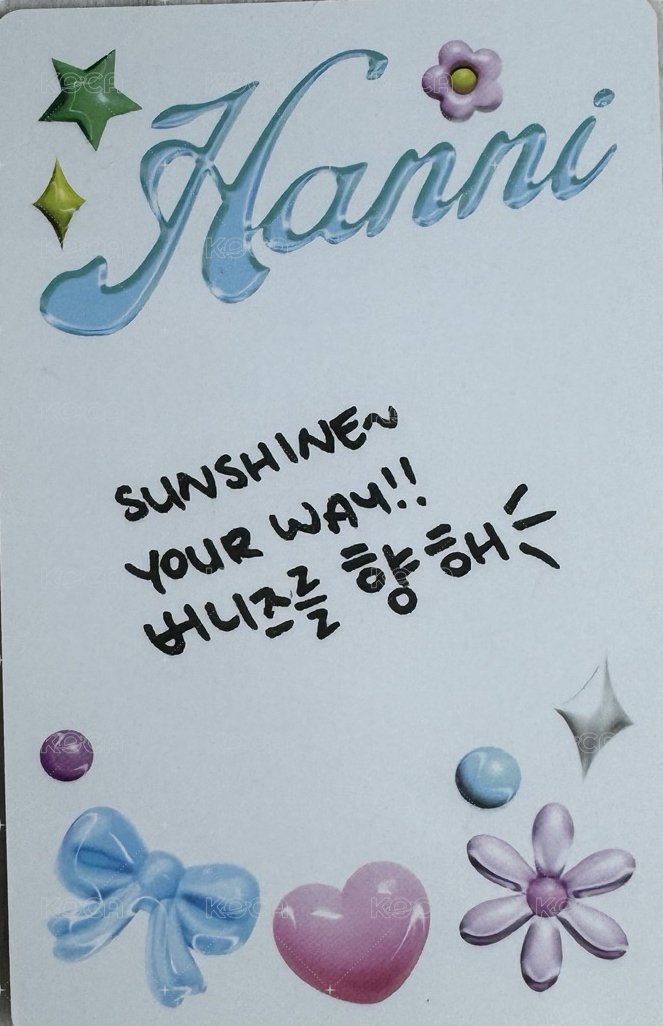 Hanni
SUNSHINE~
YOUR WAY!!
버니즈를 향해